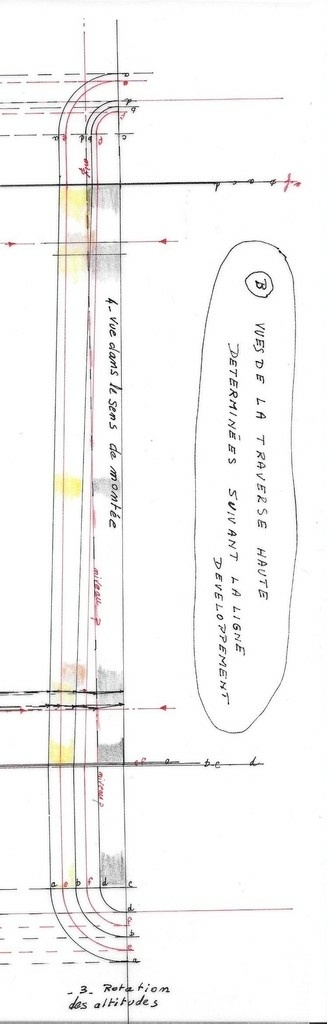 B
VUES DE LA TRAVERSE HAUTE
DETERMINÉES SUIVANT LA LIGNE
DEVELOPPEMENT
4- vue dans le sens de montée
niveau p
niveau p
a
e
d
b
f
a
e
d
b
f
c
d c a b e f
e f a b c d
a e b f d c
d
f
b
e
a
_ 3_ Rotation
des altitudes